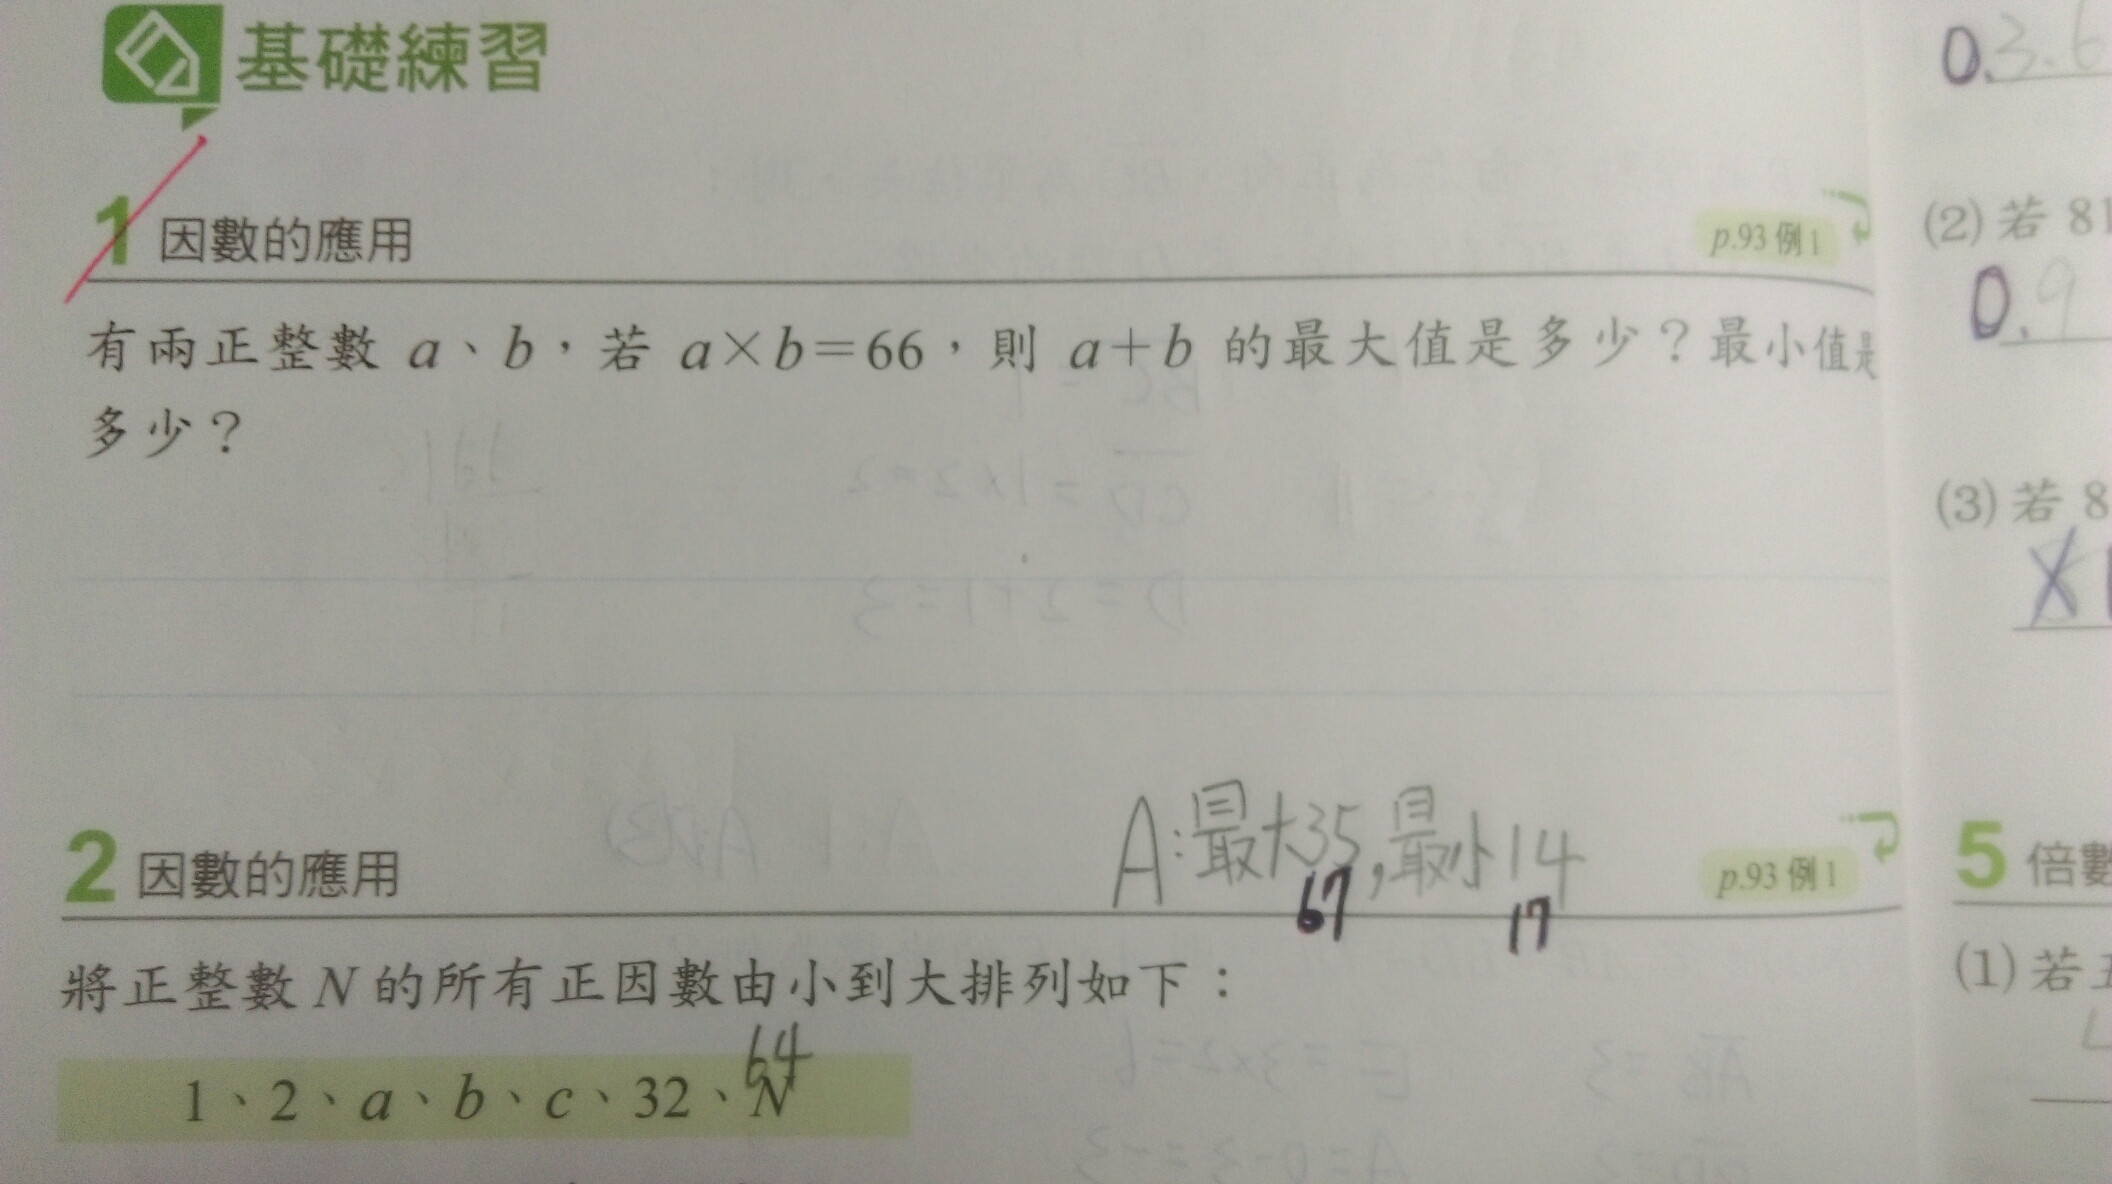 基礎練習
1 因數的應用
p.93 例1
有兩正整數 a、b,若 a×b=66,則 a+b 的最大值是多少?最小值是
多少?
A:最大35,最小14
67
17
2 因數的應用
p.93 例1
將正整數 N 的所有正因數由小到大排列如下:
64
1、2、a、b、c、32、N
0.3.6
(2) 若 81
0.9
(3) 若 8
X
5 倍數
(1) 若